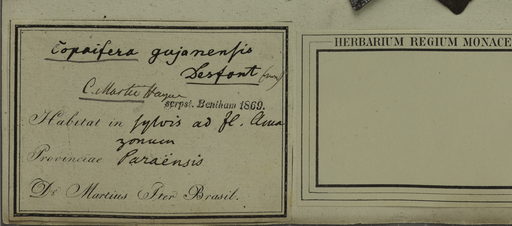 Copaifera gujanensis
Desfont
C. Martii Hayne
scrpst. Bentham 1869.
Habitat in sylvis ad fl. Ama
zonum
Provinciae Paraënsis
Dr. Martius Iter Brasil.
HERBARIUM REGIUM MONACE